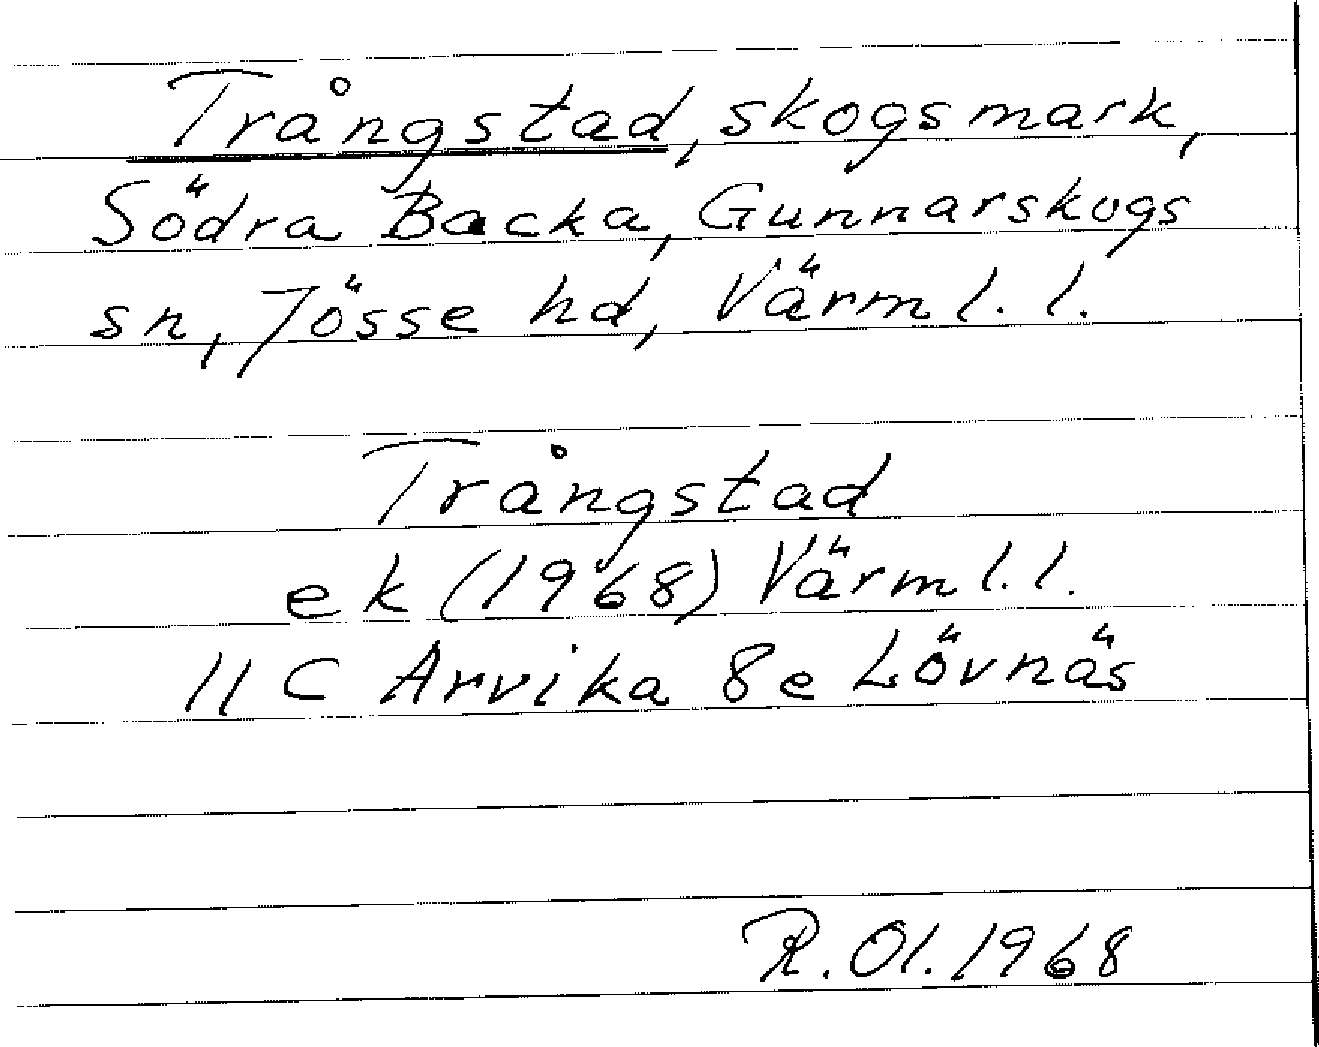 Trångstad, skogsmark,
Södra Backa, Gunnarskogs
sn, Jösse hd, Värml. l.
Trångstad
ek (1968) Värml. l.
11 C Arvika 8e Lövnäs
R. Ol. 1968